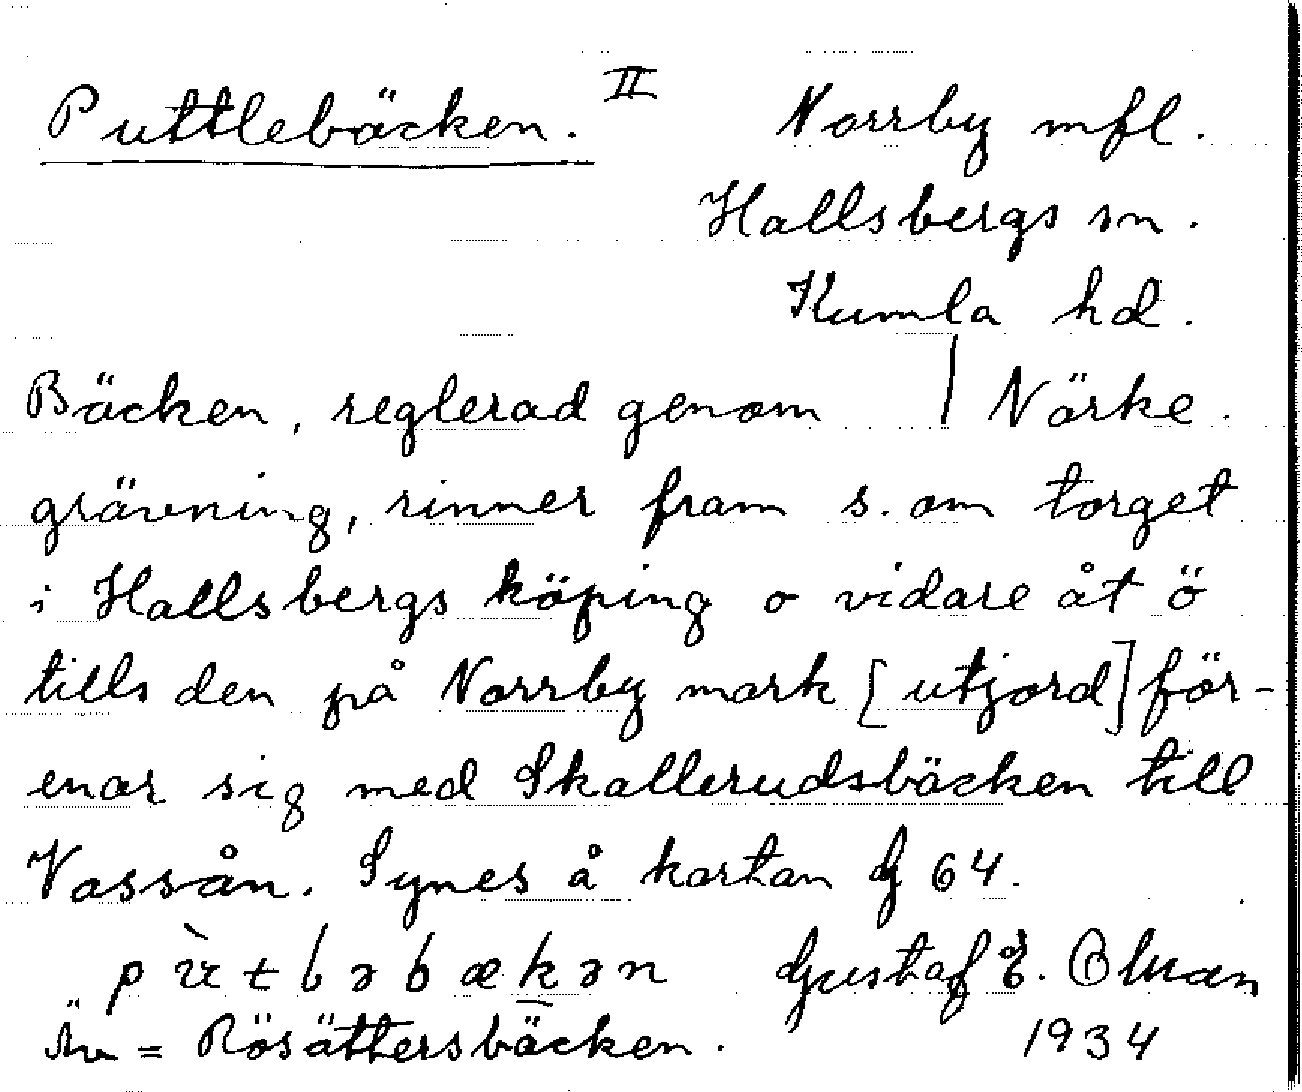 Puttlebäcken. II Norrby mfl.
Hallsbergs sn.
Kumla hd.
Bäcken, reglerad genom | Närke.
grävning, rinner fram s. om torget
i Hallsbergs köping o vidare åt ö
tills den på Norrby mark [utjord] för-
enar sig med Skallerudsbäcken till
Vassån. Synes å kartan G 64.
Gustaf E. Ölman
= Rösättersbäcken. 1934